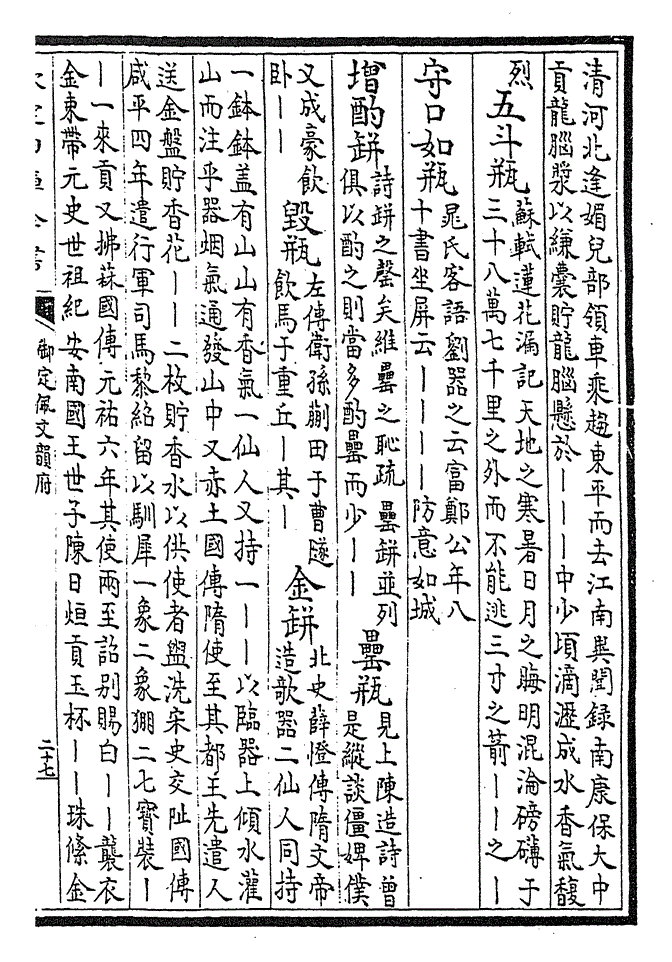 清河北逢媚兒部領車乘趨東平而去江南異聞録南康保大中
貢龍腦漿以縑囊貯龍腦懸於丨丨丨中少頃滴瀝成水香氣馥
烈
五斗瓶
蘇軾蓮花漏記天地之寒暑日月之晦明混淪磅礴于
三十八萬七千里之外而不能逃三寸之箭丨丨之丨
守口如瓶
晁氏客語劉器之云富鄭公年八
十書坐屏云丨丨丨丨防意如城
增酌缾
詩缾之罄矣維罍之恥疏 罍缾並列
俱以酌之則當多酌罍而少丨丨
罍瓶
見上陳造詩曾
是縱談僵婢僕
又成豪飲
卧丨丨
毀瓶
左傳衛孫蒯田于曹隧
飲馬于重丘丨其丨
金缾
北史薛憕傳隋文帝
造欹器二仙人同持
一鉢鉢盖有山山有香氣一仙人又持一丨丨以臨器上傾水灌
山而注乎器烟氣通發山中又赤土國傳隋使至其都王先遣人
送金盤貯香花丨丨二枚貯香水以供使者盥洗宋史交阯國傳
咸平四年遣行軍司馬黎紹留以馴犀一象二象㹶二七寳裝丨
丨一來貢又拂菻國傳元祐六年其使兩至詔别賜白丨丨襲衣
金束帶元史世祖紀 安南國王世子陳日烜貢玉杯丨丨珠絛金
御定佩文韻府
二十七